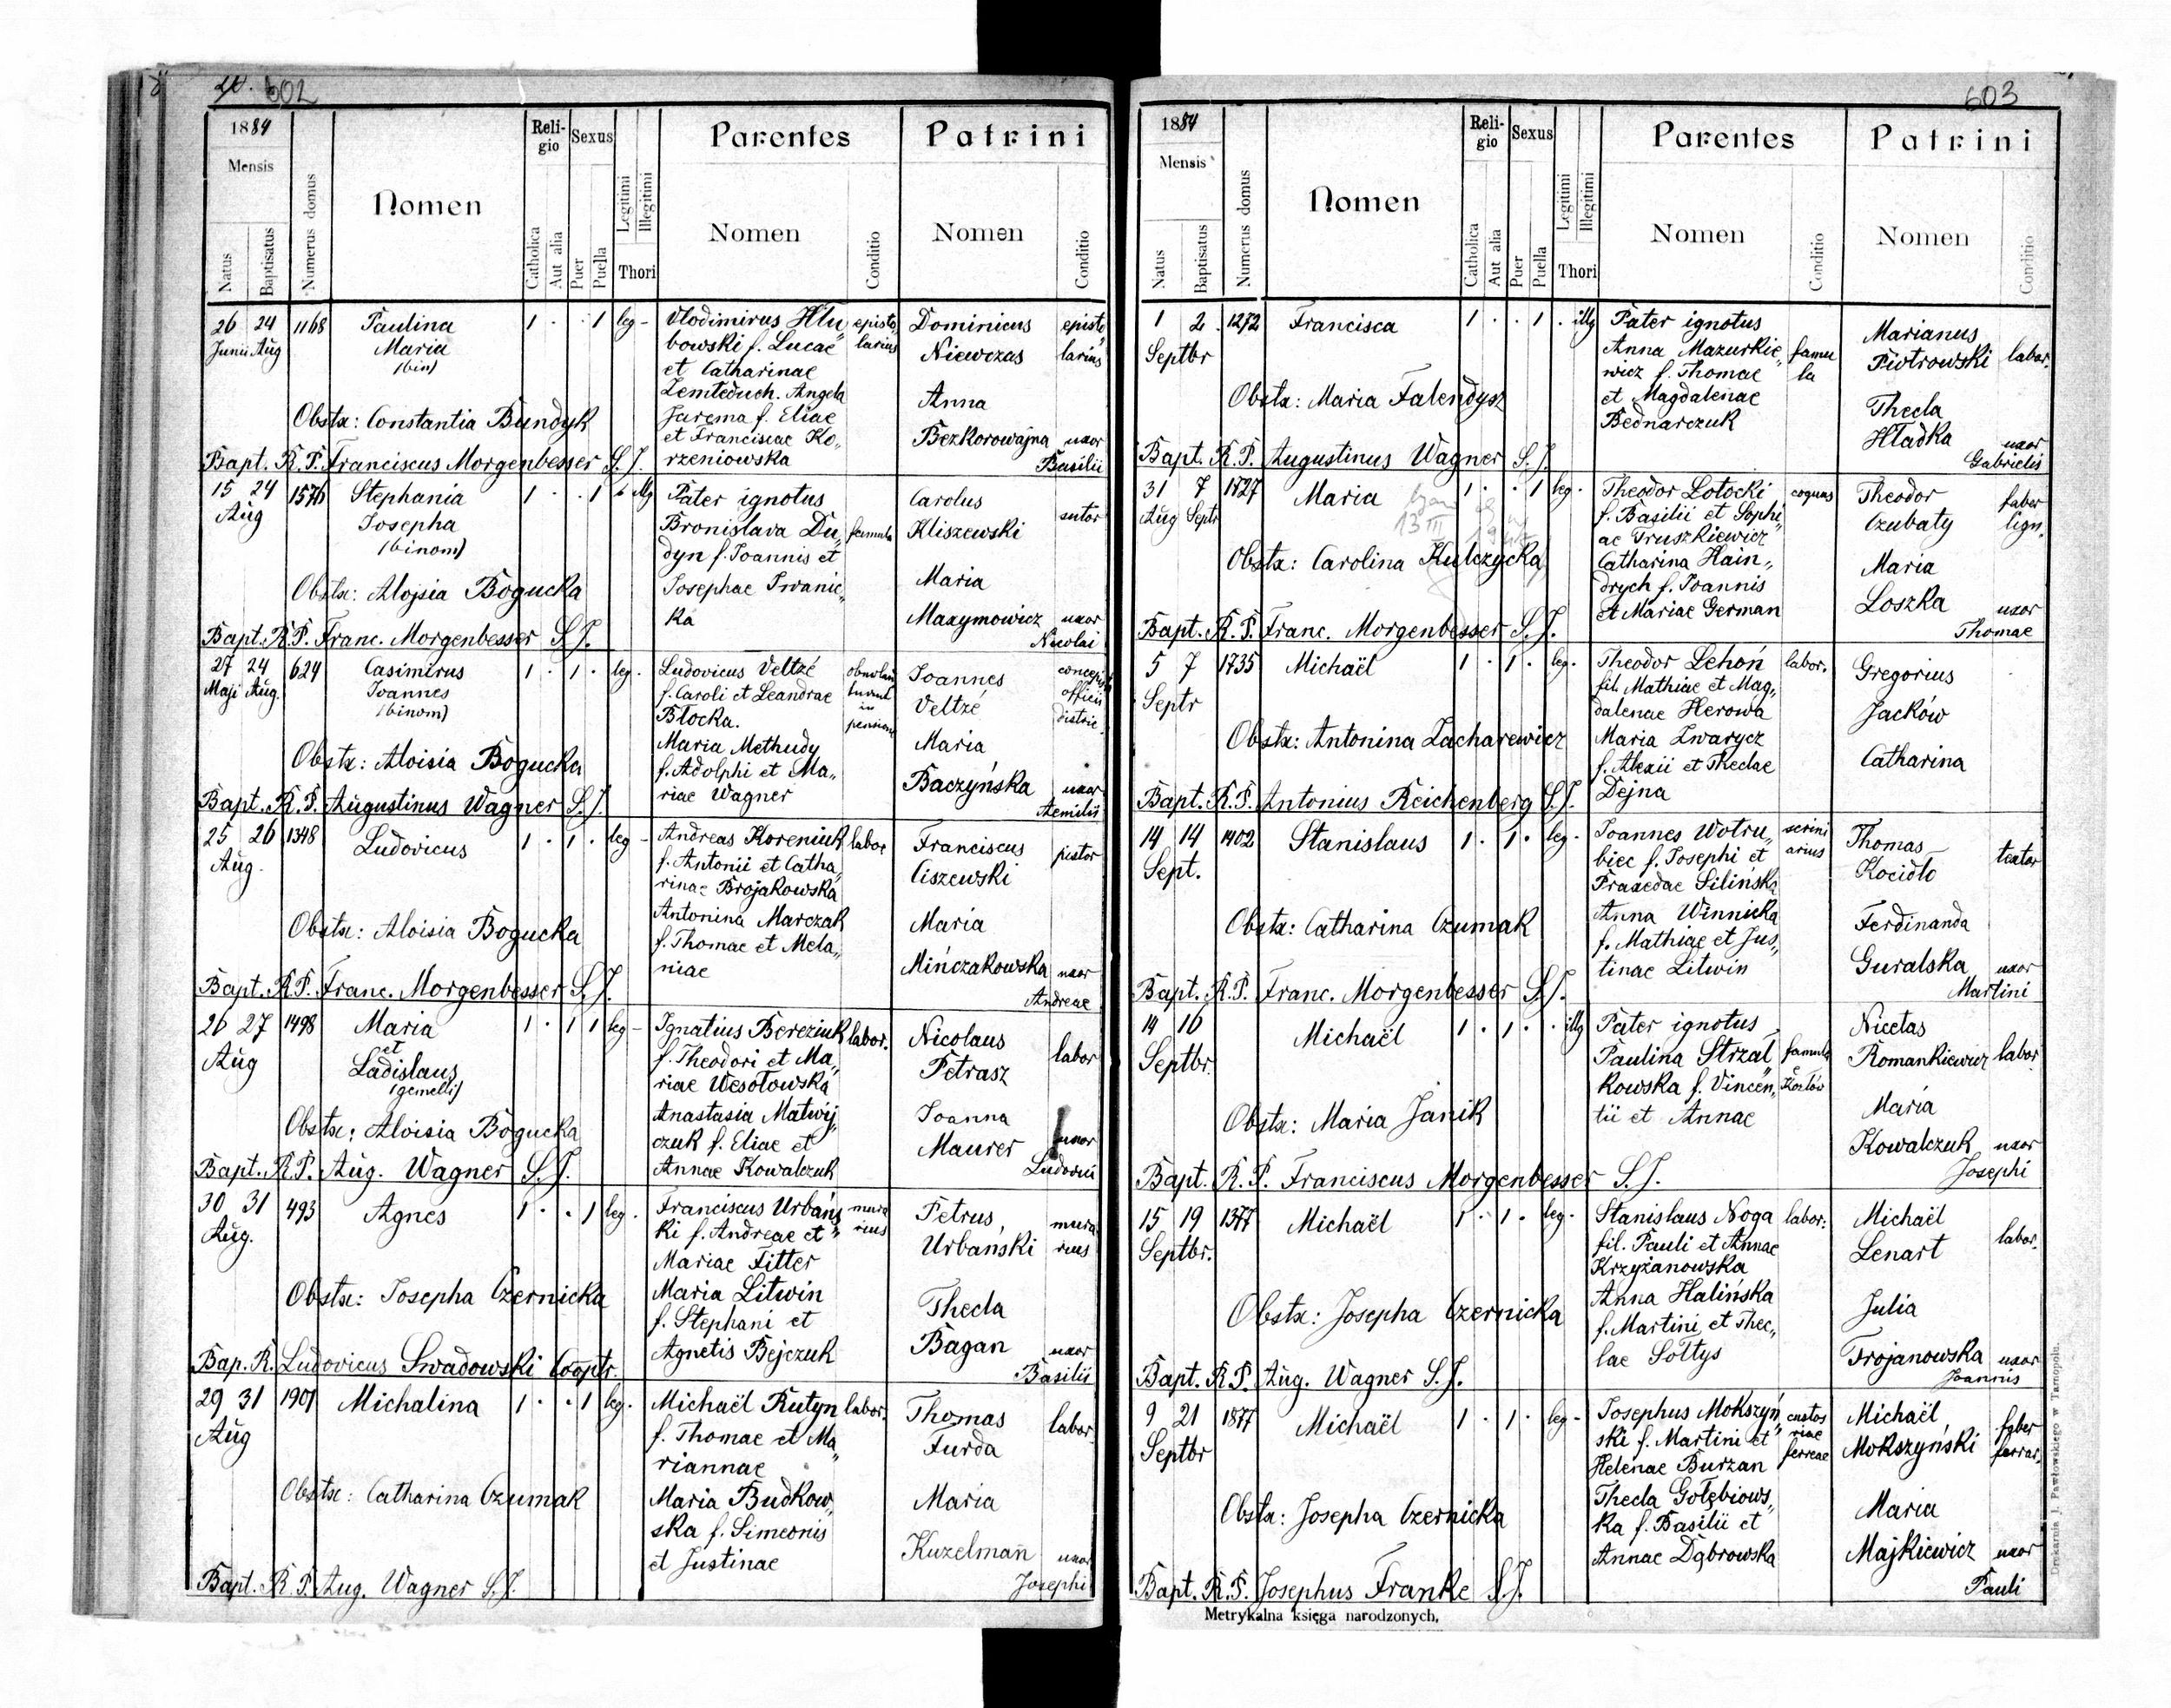 602
1884
Mensis
Natus
Baptisatus
Numerus domus
Nomen
Religio
Catholica
Aut alia
Sexus
Puer
Puella
Legitimi
Illegitimi
Thori
Parentes
Nomen
Conditio
Patrini
Nomen
Conditio
26 24 1168 Paulina 1 · · 1 leg - Vlodimirus Hłu„ episto„ Dominicus episto„
Junii Aug Maria bowski f. Lucae larius Niewczas larius
(bin) et Catharinae
Zemłeduch. Angela Anna
Obstx: Constantia Bundyk Jarema f. Eliae
et Franciscae Ko„ Bezkorowajna uxor
Bapt. R. P. Franciscus Morgenbesser S. J. rzeniowska Basilii
15 24 1576 Stephania 1 · · 1 illg Pater ignotus Carolus sutor
Aug Josepha Bronislava Du„ famula Kliszewski
(binom) dyn f. Joannis et
Obstx: Alojsia Bogucka Josephae Iwanic„ Maria
ka Maxymowicz uxor
Bapt. R. P. Franc. Morgenbesser S. J. Nicolai
27 24 624 Casimirus 1 · 1 · leg. Ludovicus Veltzé Joannes
Maji Aug. Joannes f. Caroli et Leandrae in Veltzé officii
(binom) Błocka. distric.
Maria Methudy Maria
Obstx: Aloisia Bogucka f. Adolphi et Ma„ Baczyńska uxor
Bapt. R. P. Augustinus Wagner S. J. riae Wagner Aemilii
25 26 1348 Ludovicus 1 · 1 · leg - Andreas Koreniuk labor Franciscus pistor
Aug. f. Antonii et Catha„ Ciszewski
rinae Brojakowska
Obstx: Aloisia Bogucka Antonina Marczak Maria
f. Thomae et Mela„ Mińczakowska uxor
Bapt. R. P. Franc. Morgenbesser S. J. niae Andreae
26 27 1498 Maria 1 · 1 1 leg - Ignatius Bereziuk labor. Nicolaus labor
Aug et f. Theodori et Ma„ Petrasz
Ladislaus riae Wesołowska
(gemelli) Anastasia Matwij„ Joanna
Obstx: Aloisia Bogucka czuk f. Eliae et Maurer uxor
Bapt. R. P. Aug. Wagner S. J. Annae Kowalczuk Ludovici
30 31 493 Agnes 1 · · 1 leg. Franciscus Urbańs„ mura Petrus mura
Aug. ki f. Andreae et rius Urbański rius
Mariae Fitter
Obstx: Josepha Czernicka Maria Litwin Thecla
f. Stephani et Bagan uxor
Bap. R. Ludovicus Swadowski Cooptr. Agnetis Bejczuk Basilii
29 31 1901 Michalina 1 · · 1 leg. Michaël Rutyn labor. Thomas labor.
Aug f. Thomae et Ma„ Furda
riannae
Obstx: Catharina Czumak Maria Budkow„ Maria
ska f. Simeonis Kuzelman uxor
Bapt. R. P. Aug. Wagner S. J. et Justinae Josephi
603
1884
Mensis
Natus
Baptisatus
Numerus domus
Nomen
Religio
Catholica
Aut alia
Sexus
Puer
Puella
Legitimi
Illegitimi
Thori
Parentes
Nomen
Conditio
Patrini
Nomen
Conditio
1 2 1272 Francisca 1 · · 1 · illg Pater ignotus Marianus
Septbr Anna Mazurkie„ famu Piotrowski labor.
wicz f. Thomae la
Obstx: Maria Falendysz et Magdalenae Thecla
Bednarczuk Hładka uxor
Bapt. R. P. Augustinus Wagner S. J. Gabrielis
31 7 1727 Maria 1 · · 1 leg. Theodor Łotocki coquus Theodor faber
Aug Septr 13 III f. Basilii et Sophi„ Czubaty lign.
ae Truszkiewicz
Obstx: Carolina Kulczycka Catharina Hain„ Maria
drych f. Joannis Łoszka uxor
Bapt. R. P. Franc. Morgenbesser S. J. et Mariae German Thomae
5 7 1735 Michaël 1 · 1 · leg. Theodor Lehoń labor. Gregorius
Septr fil. Mathiae et Mag„ Jacków
dalenae Herowa
Obstx: Antonina Zacharewicz Maria Zwarycz Catharina
f. Alexii et Theclae
Bapt. R. P. Antonius Reichenberg S. J. Dejna
14 14 1402 Stanislaus 1 · 1 · leg - Joannes Wotru„ scrini Thomas textor
Sept. biec f. Josephi et arius Kocidło
Praxedae Silińska
Obstx: Catharina Czumak Anna Winnicka Ferdinanda
f. Mathiae et Jus„ Guralska uxor
Bapt. R. P. Franc. Morgenbesser S. J. tinae Litwin Martini
14 16 Michaël 1 · 1 · · illg Pater ignotus Nicetas
Septbr. Paulina Strzał„ famula Romankiewicz labor
kowska f. Vincen„ Kozłów
Obstx: Maria Janik tii et Annae Maria
Kowalczuk uxor
Bapt. R. P. Franciscus Morgenbesser S. J. Josephi
15 19 1377 Michaël 1 · 1 · leg. Stanislaus Noga labor: Michaël labor.
Septbr. fil. Pauli et Annae Lenart
Krzyżanowska
Obstx: Josepha Czernicka Anna Halińska Julia
f. Martini et Thec„ Trojanowska uxor
Bapt. R. P. Aug. Wagner S. J. lae Sołtys Joannis
9 21 1877 Michaël 1 · 1 · leg - Josephus Mokszyń„ custos Michaël faber
Septbr ski f. Martini et viae Mokszyński ferrar.
Helenae Burzan ferreae
Obstx: Josepha Czernicka Thecla Gołębiows„ Maria
ka f. Basilii et Majkiewicz uxor
Bapt. R. P. Josephus Franke S. J. Annae Dąbrowska Pauli
Metrykalna księga narodzonych.
Drukarnia J. Pawłowskiego w Tarnopolu.